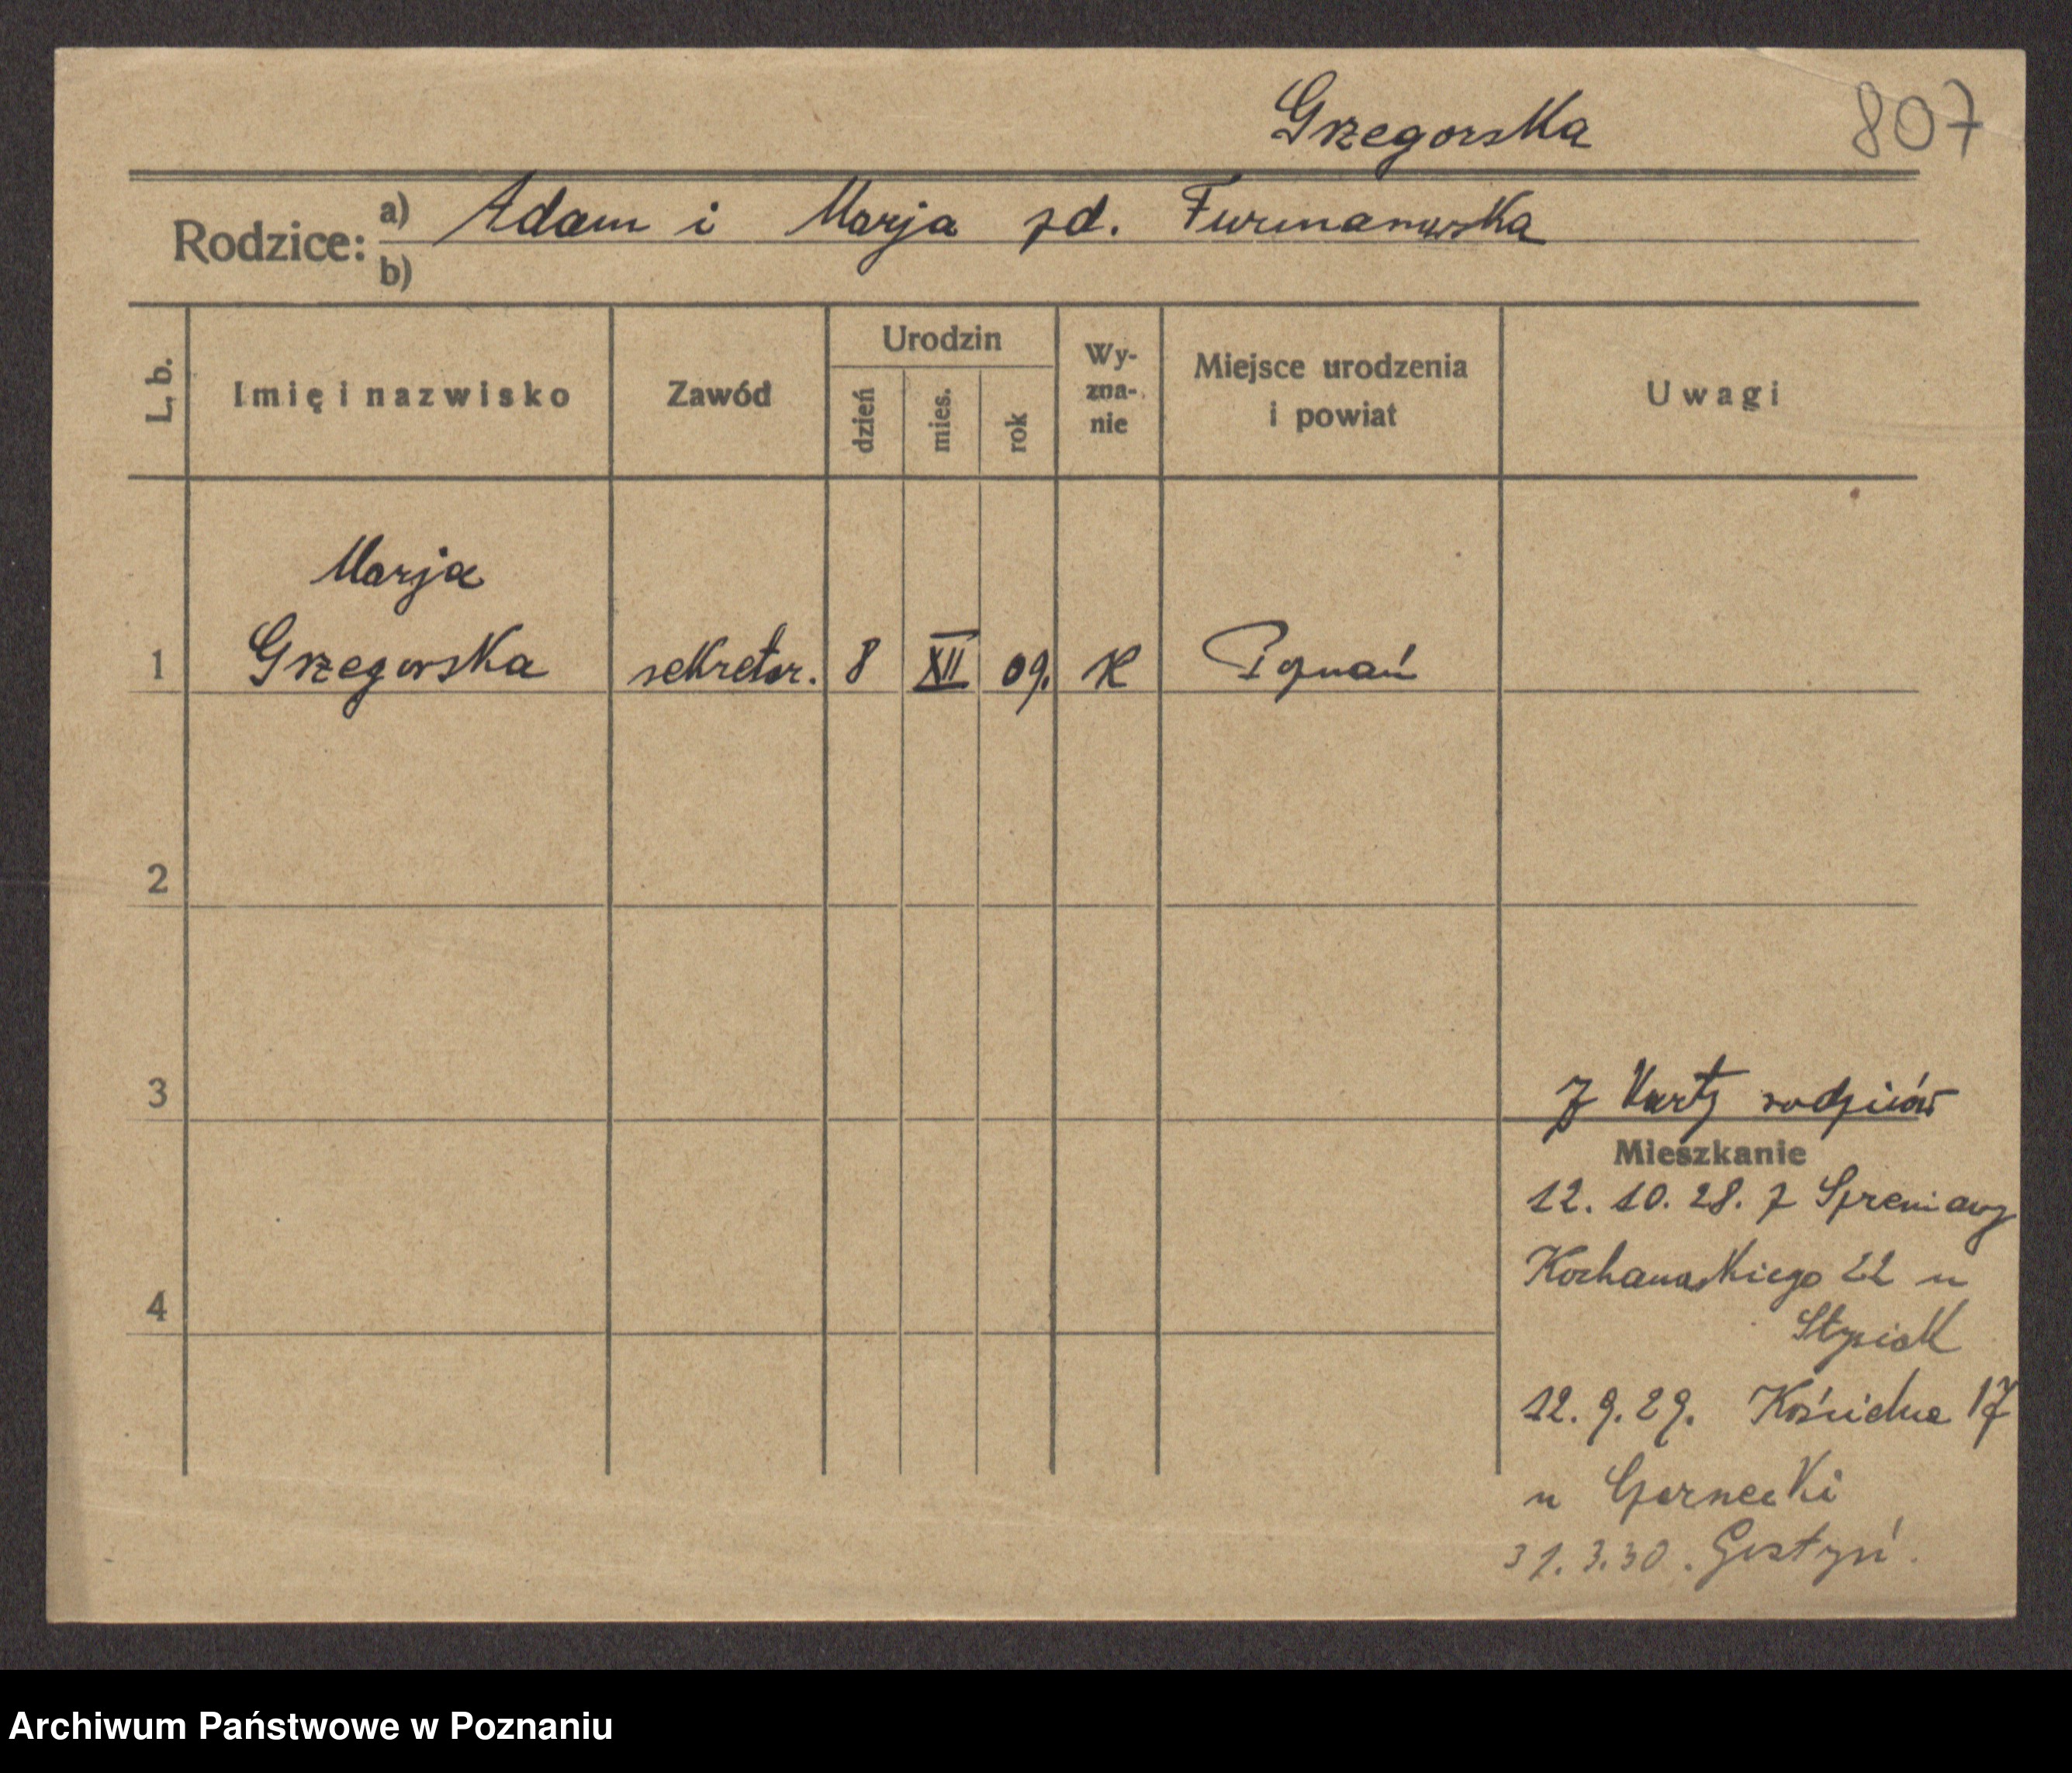 Grzegorska
807
Rodzice: a) Adam i Marja zd. Furmanowska
b)
L. b.
Imię i nazwisko
Zawód
Urodzin
dzień
mies.
rok
Wy-
zna-
nie
Miejsce urodzenia
i powiat
Uwagi
Marja
1 Grzegorska sekretar. 8 XII 09. K Poznań
2
3
Z karty rodziców
Mieszkanie
12. 10. 28. z Śremiany
Kochanowskiego 22 u
4
Stysiak
12. 9. 29. Kościelna 17
u Czarnecki
31. 3. 30. Gostyń.
Archiwum Państwowe w Poznaniu